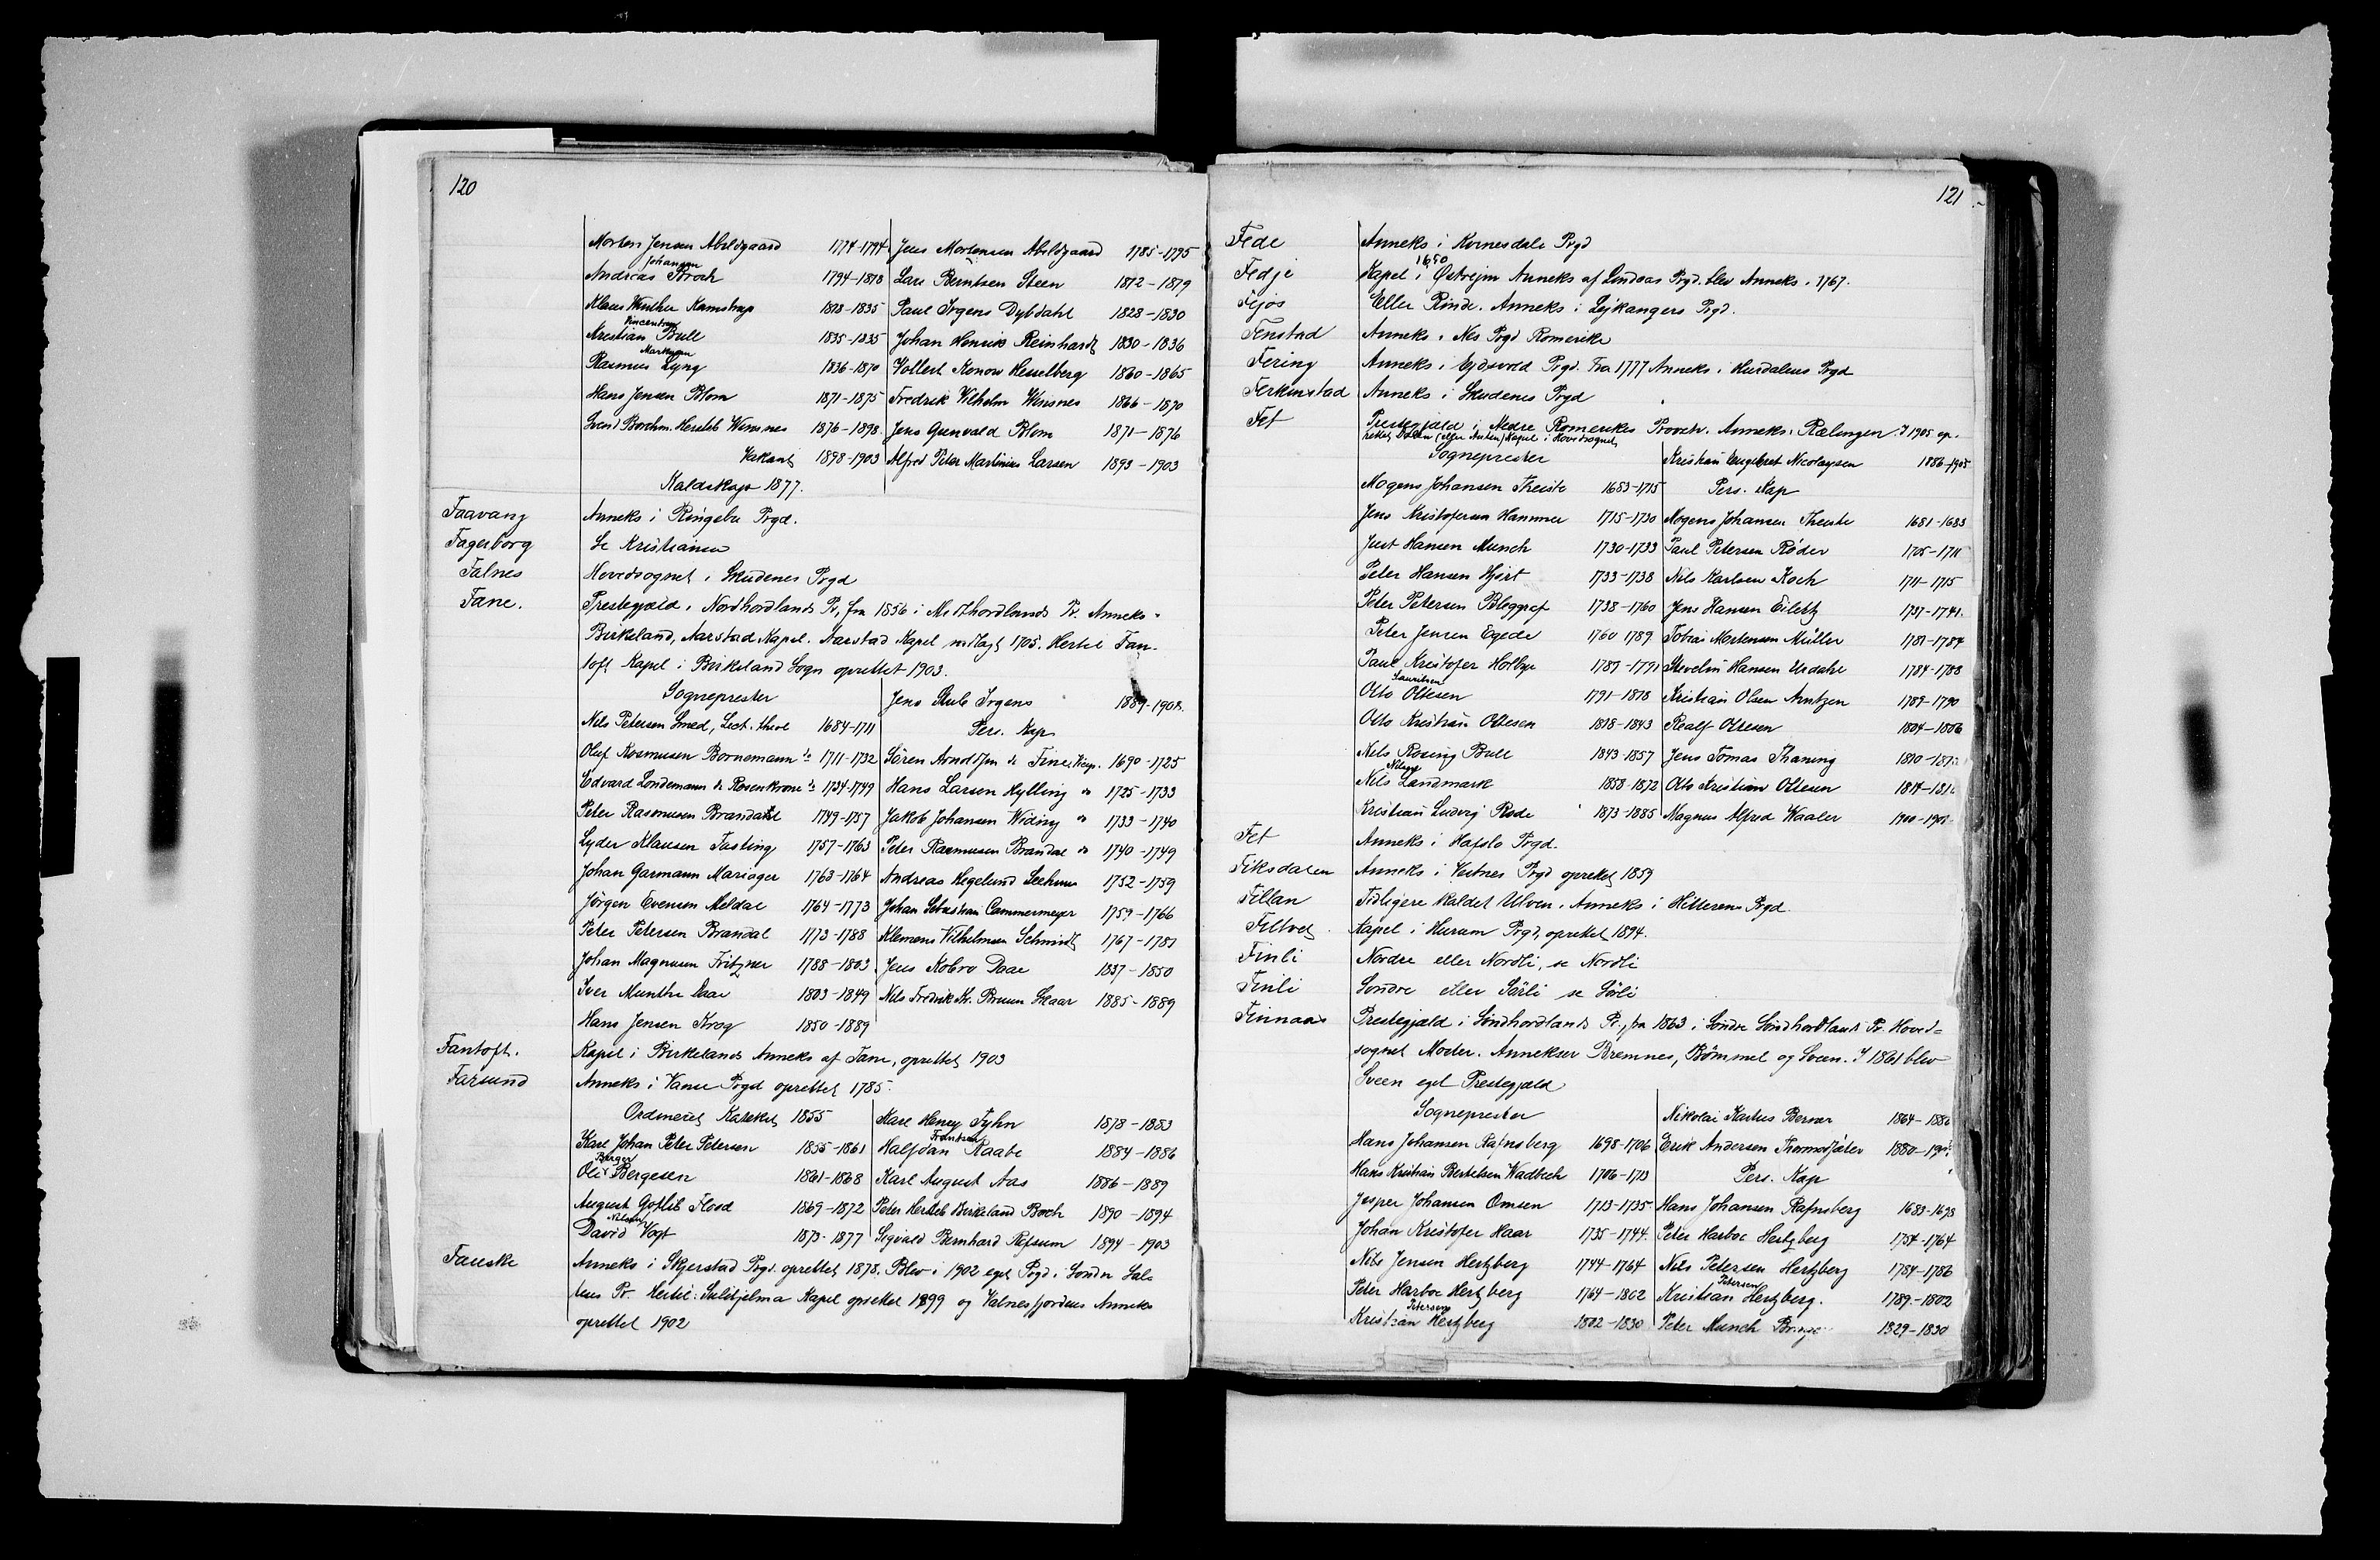 120
Morten Jensen Abildgaard 1774-1794 Jens Mortensen Abildgaard 1785-1795
Johansen
Andreas Broch 1794-1818 Lars Berntsen Steen 1812-1819
Klaus Winther Kamstrup 1818-1835 Paul Irgens Dybdahl 1828-1830
Vincentsen
Kristian Bull 1835-1835 Johan Henrik Reinhardt 1830-1836
Markusen
Rasmus Lyng 1836-1870 Vollert Konow Hesselberg 1860-1865
Hans Jensen Blom 1871-1875 Fredrik Vilhelm Winsnes 1866-1870
Svend Borchm. Hersleb Winsnes 1876-1898. Jens Grønvold Blom 1871-1876
Vakant 1898-1903 Alfred Peter Martinius Larsen 1893-1903
Kaldskap 1877.
Faavang Anneks i Ringebu Prgd.
Fagerborg Se Kristiania
Falnes Hovedsognet i Skudenes Prgd
Fane. Prestegjæld i Nordhordlands Pr, fra 1856 i Midthordlands Pr. Anneks:
Birkeland, Aarstad Kapel. Aarstad Kapel nedlagt 1705. Hertil Fan-
toft Kapel i Birkeland Sogn oprettet 1903.
Sogneprester Jens Stub Irgens 1889-1908.
Nils Petersen Smed, Lect. theol 1684-1711 Pers. Kap
Oluf Rosmusen Bornemann do 1711-1732 Sören Arnoldsen de Fine, Vicep. 1690-1725
Edvard Londemann de Rosenkrone do 1734-1749 Hans Larsen Hylling do 1725-1733
Peter Rasmusen Brandal 1749-1757 Jakob Johansen Widing do 1733-1740
Lyder Klausen Fasting 1757-1763 Peder Rasmusen Brandal do 1740-1749
Johan Garmann Mariager 1763-1764 Andreas Hegelund Leehuus 1752-1759
Jörgen Evensen Meldal 1764-1773 Johan Sebastian Cammermeyer 1759-1766
Peter Petersen Brandal 1773-1788 Klemens Vilhelmsen Schmidt 1767-1781
Johan Magnusen Fritzner 1788-1803 Jens Kobro Daae 1837-1850
Iver Munthe Daae 1803-1849 Nils Fredrik Kr. Bruun Skaar 1885-1889
Hans Jensen Krog 1850-1889
Fantoft. Kapel i Birkelands Anneks af Fane, oprettet 1903
Farsund Anneks i Vanse Prgd oprettet 1785.
Ordineret Kateket 1855 Karl Henry Fyhn 1878-1883
Frantsen
Karl Johan Peter Petersen 1855-1861 Halfdan Raabe 1884-1886
Berger
Ole Bergesen 1861-1868 Karl August Aas 1886-1889
August Gotlib Flood 1869-1872 Peter Hersleb Birkeland Broch 1890-1894
Nilsen
David Vogt 1873-1877 Sigvald Bernhard Refsum 1894-1903
Fauske Anneks i Skjerstad Prgd. oprettet 1878. Blev i 1902 eget Prgd. i Söndre Sal-
tens Pr. Hertil: Sulitjelma Kapel oprettet 1899 og Valnesfjordens Anneks
oprettet 1902
121
Fede Anneks i Kvinesdals Prgd
1650
Fedje Kapel i Østrejm Anneks af Lindaas Prgd. blev Anneks i 1767.
Fejos Eller Rinde. Anneks i Lejkangers Prgd.
Fenstad Anneks i Nes Prgd Romerike
Fering Anneks i Ejdsvold Prgd. Fra 1777 Anneks i Hurdalens Prgd
Ferkinstad Anneks i Skudenes Prgd
Fet Prestegjæld i Nedre Romerikes Provsti. Anneks: Rælingen. I 1905 op-
rettet Dalen (eller Austen) Kapel i Hovedsognet
Sogneprester Kristian Engebret Nicolaysen 1886-1905
Mogens Johansen Threiste 1683-1715 Pers. Kap
Jens Kristofersen Hammer 1715-1730 Mogens Johansen Theiste 1681-1683
Just Hansen Munch 1730-1733 Paul Petersen Røder 1705-1711
Peter Hansen Hjort 1733-1738 Nils Karlsen Koch 1711-1715
Peter Petersen Bloggraf 1738-1760 Jens Hansen Eilertz 1737-1741.
Peter Jensen Egede 1760 1789 Tobias Mortensen Müller 1781-1784
Paul Kristofer Holbye 1789-1791 Stevelin Hansen Urdahl 1784-1788
Lauritsen
Otto Ottesen 1791-1818 Kristian Olsen Arntzen 1789-1790
Otto Kristian Ottesen 1818-1843 Realf Ottesen 1804-1806
Nils Rosing Bull 1843-1857 Jens Tomas Thaning 1810-181
Nilsen
Nils Landmark 1858-1872 Otto Kristian Ottesen 1814-181
Kristian Ludvig Rode 1873-1885 Magnus Alfred Waaler 1900-190
Fet Anneks i Hafslo Prgd.
Fiksdalen Anneks i Vestnes Prgd oprettet 1859
Fillan Tidligere kaldet Ulven. Anneks i Hitterens Prgd.
Filtvet Kapel i Hurum Prgd, oprettet 1894.
Finli Nordre eller Nordli, se Nordli
Finli Sondre eller Sørli se Sörli
Finnaas Prestegjæld i Söndhordlands Pr., fra 1863 i Söndre Söndhordlands Pr. Hoved-
sognet Moster. Annekser Bremnes, Bömmel og Sveen. I 1861 blev
Sveen eget Prestegjæld
Sogneprester Nikolai Kastus Berner 1864-188
Hans Johansen Rafnsberg 1698-1706 Erik Andersen Thormodsæter 1880-190
Hans Kristian Bertelsen Wadbech 1706-1713 Pers. Kap
Jesper Johansen Omsen 1713-1735 Hans Johansen Rafnsberg 1683-1698
Johan Kristofer Haar 1735-1744. Peter Harboe Hertzberg 1754-1764
Nils Jensen Hertzberg 1744-1764 Nils Petersen Hertzberg 1784-1786
Petersen
Peter Harboe Hertzberg 1764-1802 Kristian Hertzberg. 1789-1802
Petersen
Kristian Hertzberg 1802-1830 Peter Munch 1829-1830